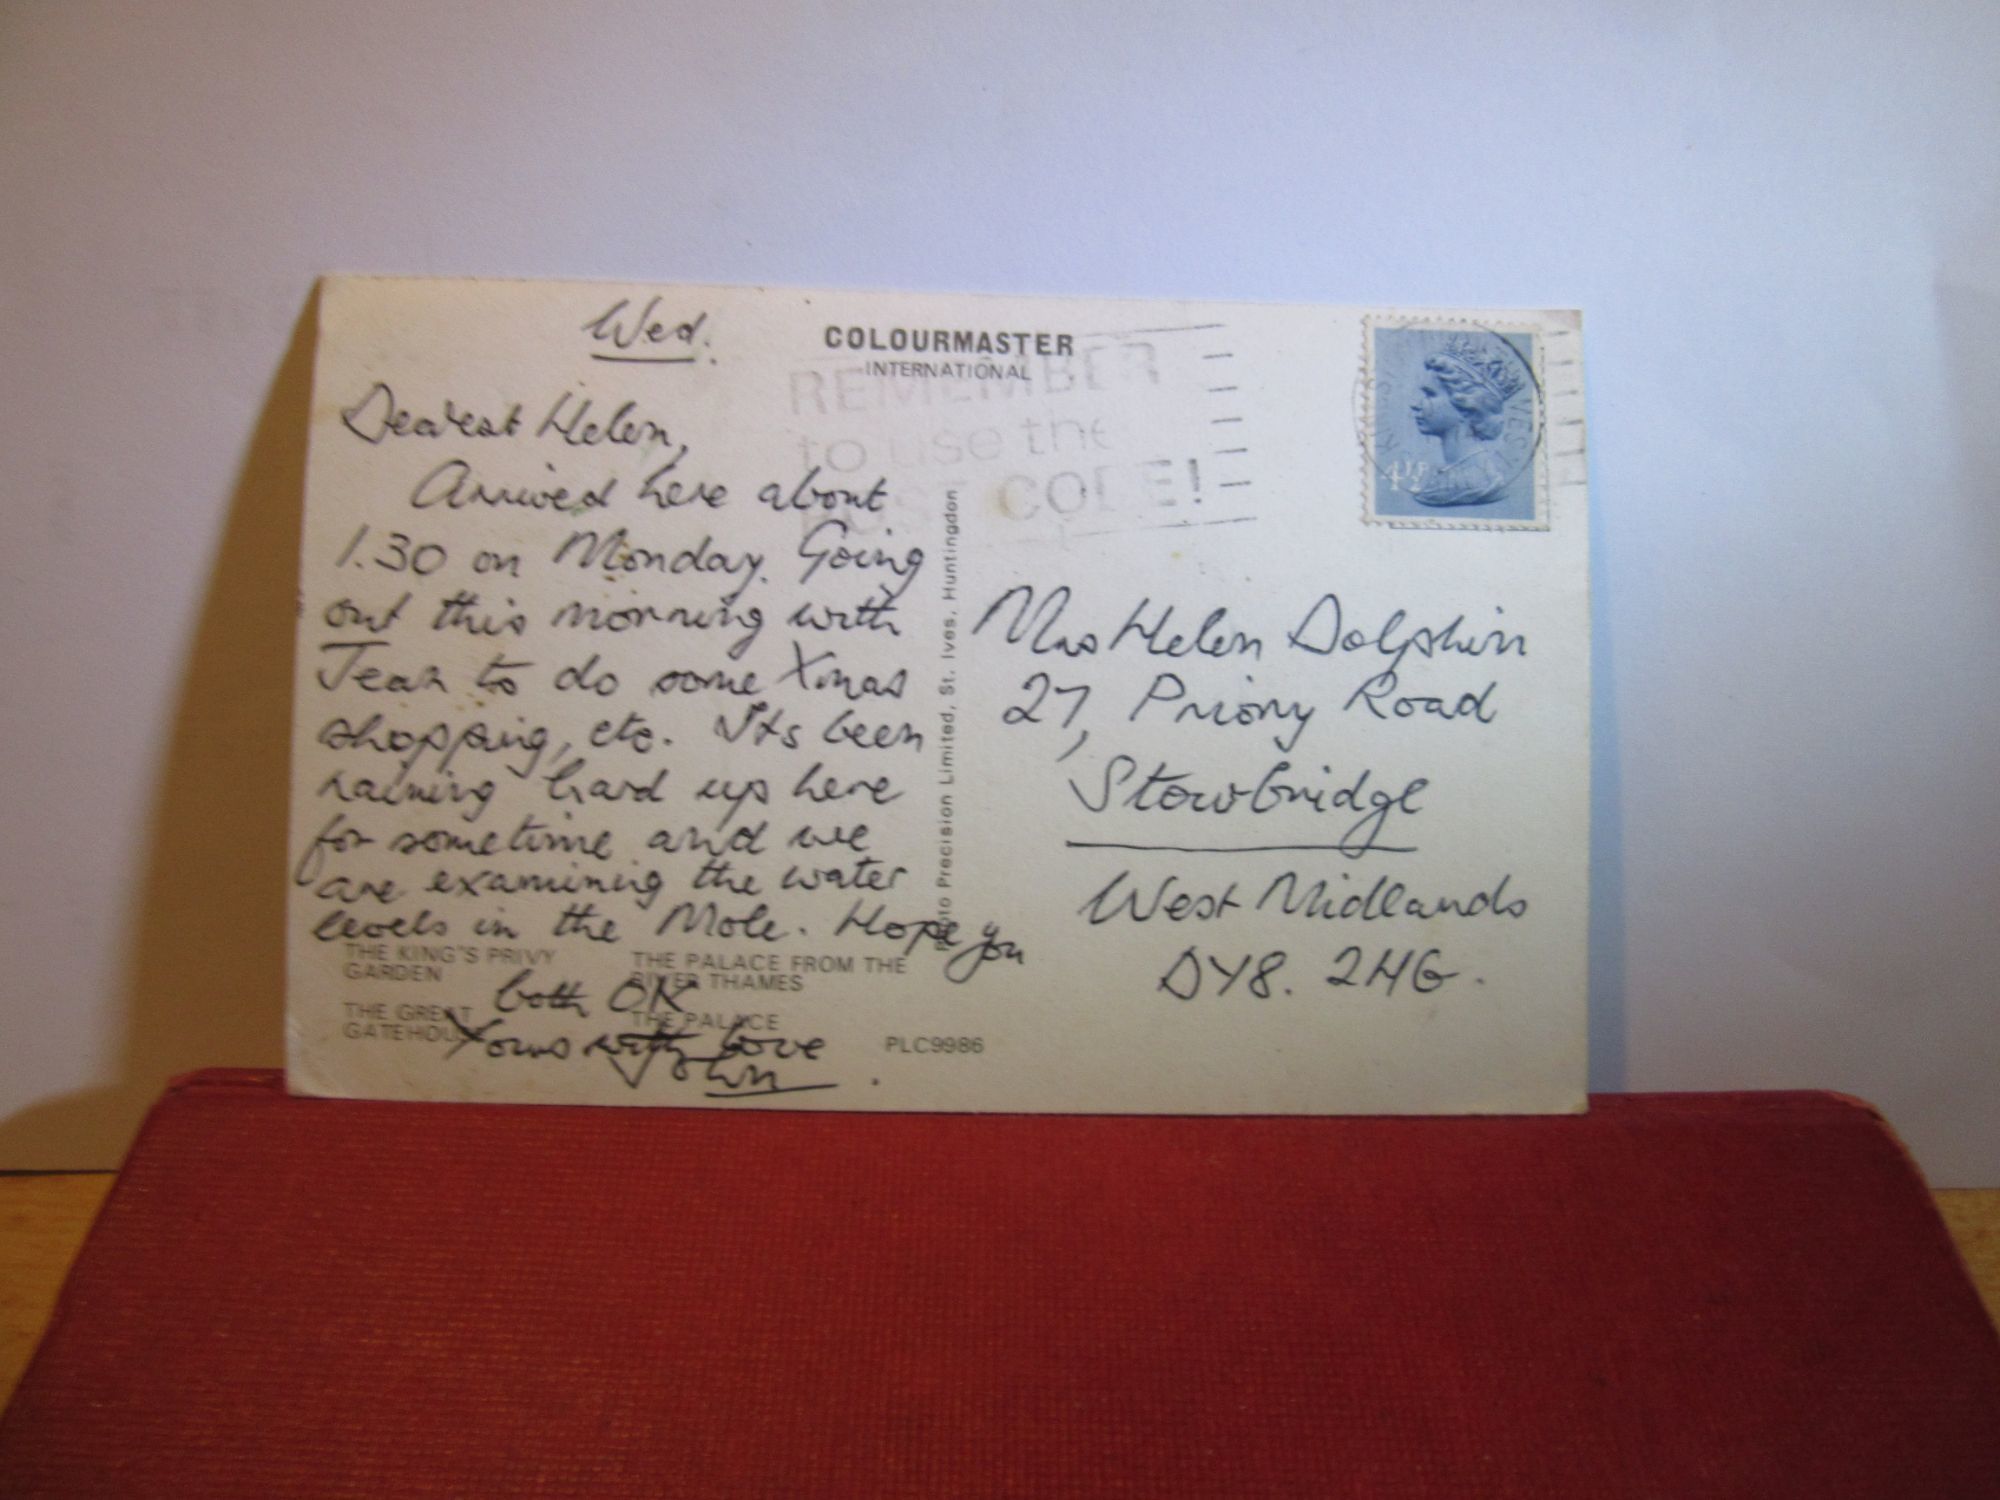 Wed.
Dearest Helen,
Arrived here about
1.30 on Monday. Going
out this morning with
Jean to do some Xmas
shopping, etc. Its been
raining hard up here
for sometime and we
are examining the water
levels in the Mole. Hope you
both OK
Yours with love
John
COLOURMASTER
INTERNATIONAL
REMEMBER
to use the
POST CODE!
4½P
Photo Precision Limited, St. Ives, Huntingdon
Mrs Helen Dolphin
27, Priory Road
Stourbridge
West Midlands
DY8. 2HG.
THE KING'S PRIVY
GARDEN
THE GREAT
GATEHOUSE
THE PALACE FROM THE
RIVER THAMES
THE PALACE
PLC9986